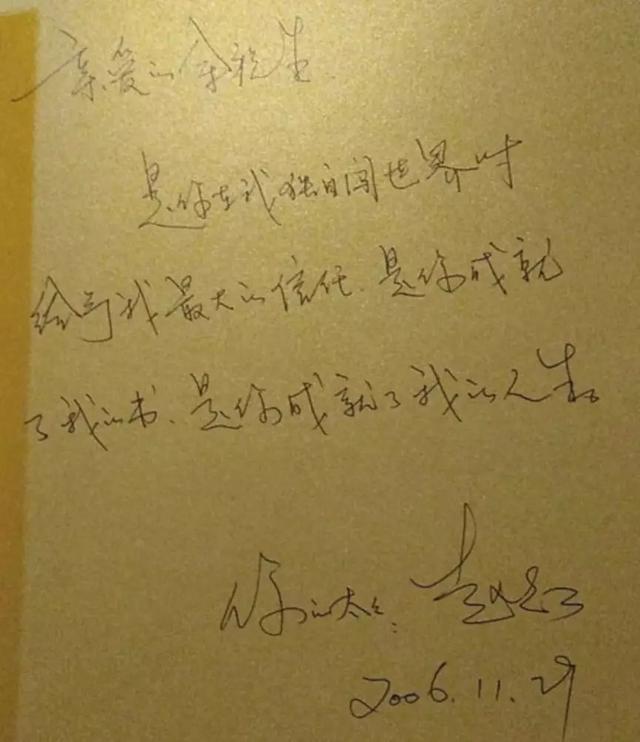 亲爱的余税生
是你在我独自闯世界时
给予我最大的信任、是你成就
了我的书、是你成就了我的人生。
你的太太: 赵红
2006.11.29